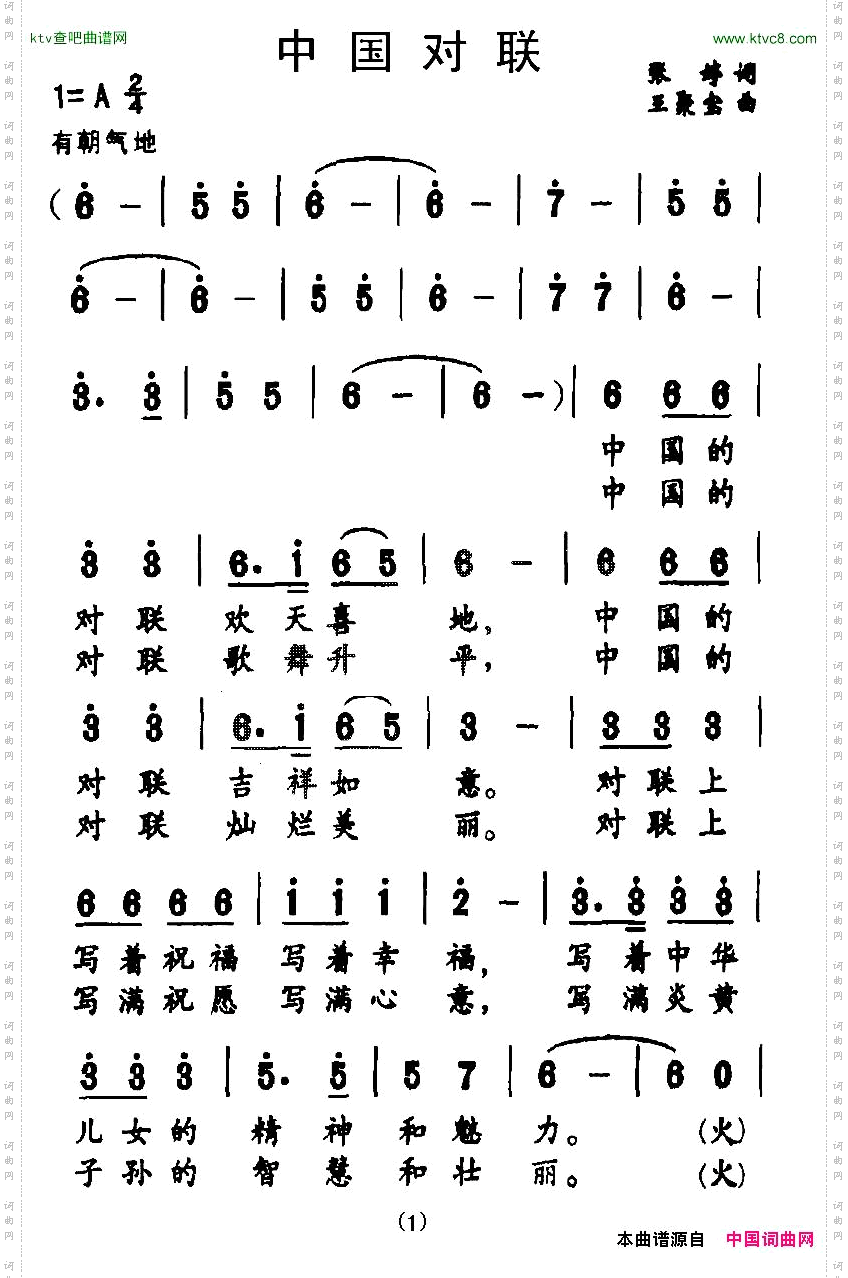 ktv查吧曲谱网
www.ktvc8.com
中国对联
张婷 词
王聚宝 曲
1=A 2/4
有朝气地
(6 - | 5 5 | 6 - | 6 - | 7 - | 5 5 |
6 - | 6 - | 5 5 | 6 - | 7 7 | 6 - |
3. 3 | 5 5 | 6 - | 6 -) | 6 6 6 |
中 国 的
中 国 的
3 3 | 6. 1 6 5 | 6 - | 6 6 6 |
对 联 欢 天 喜 地, 中 国 的
对 联 歌 舞 升 平, 中 国 的
3 3 | 6. 1 6 5 | 3 - | 3 3 3 |
对 联 吉 祥 如 意。 对 联 上
对 联 灿 烂 美 丽。 对 联 上
6 6 6 6 | 1 1 1 | 2 - | 3. 3 3 3 |
写 着 祝 福 写 着 幸 福, 写 着 中 华
写 满 祝 愿 写 满 心 意, 写 满 炎 黄
3 3 3 | 5. 5 | 5 7 | 6 - | 6 0 |
儿 女 的 精 神 和 魅 力。 (火)
子 孙 的 智 慧 和 壮 丽。 (火)
(1)
本曲谱源自 中国词曲网